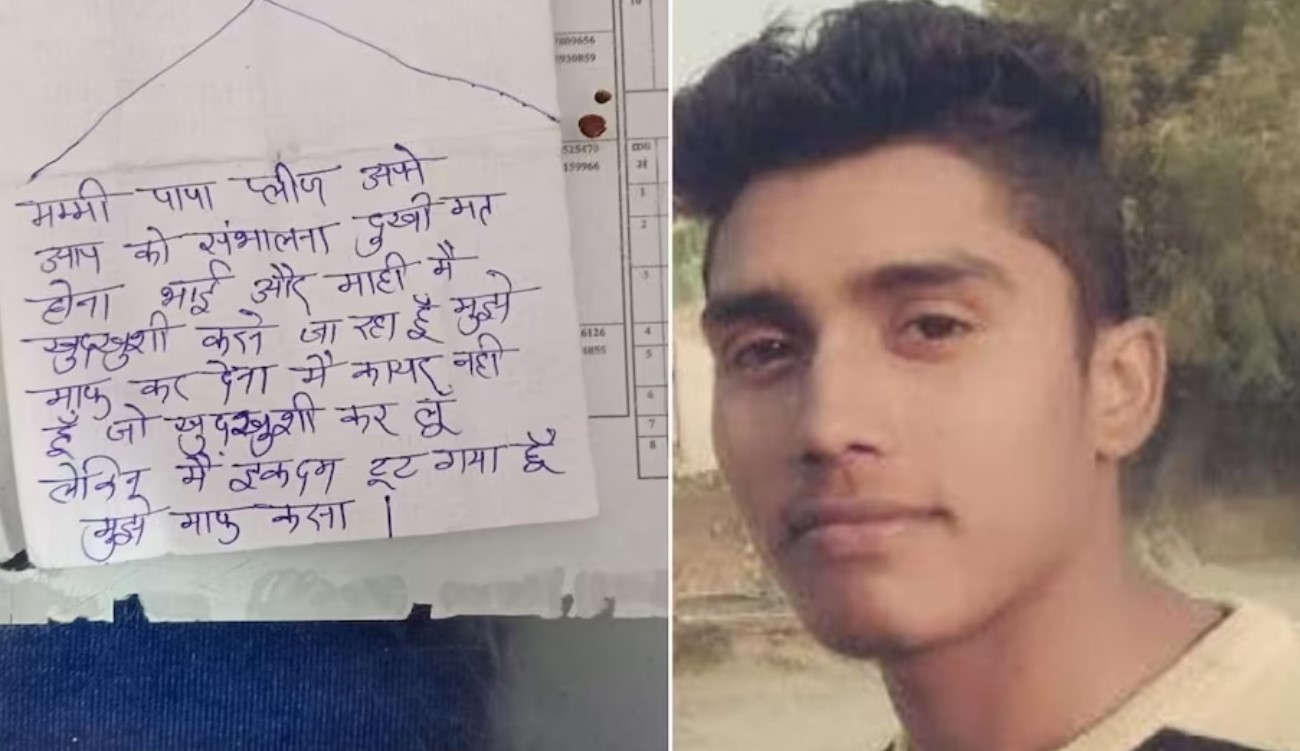 मम्मी पापा प्लीज अपने
आप को संभालना दुखी मत
होना भाई और माही मै
खुदखुशी करने जा रहा हूँ मुझे
माफ कर देना मै कायर नही
हूँ जो खुदखुशी कर लूँ
लेकिन मै इकदम टूट गया हूँ
मुझे माफ करना |
7809656
930859
525479
159966
6126
4855
1
2
3
4
5
6
7
8